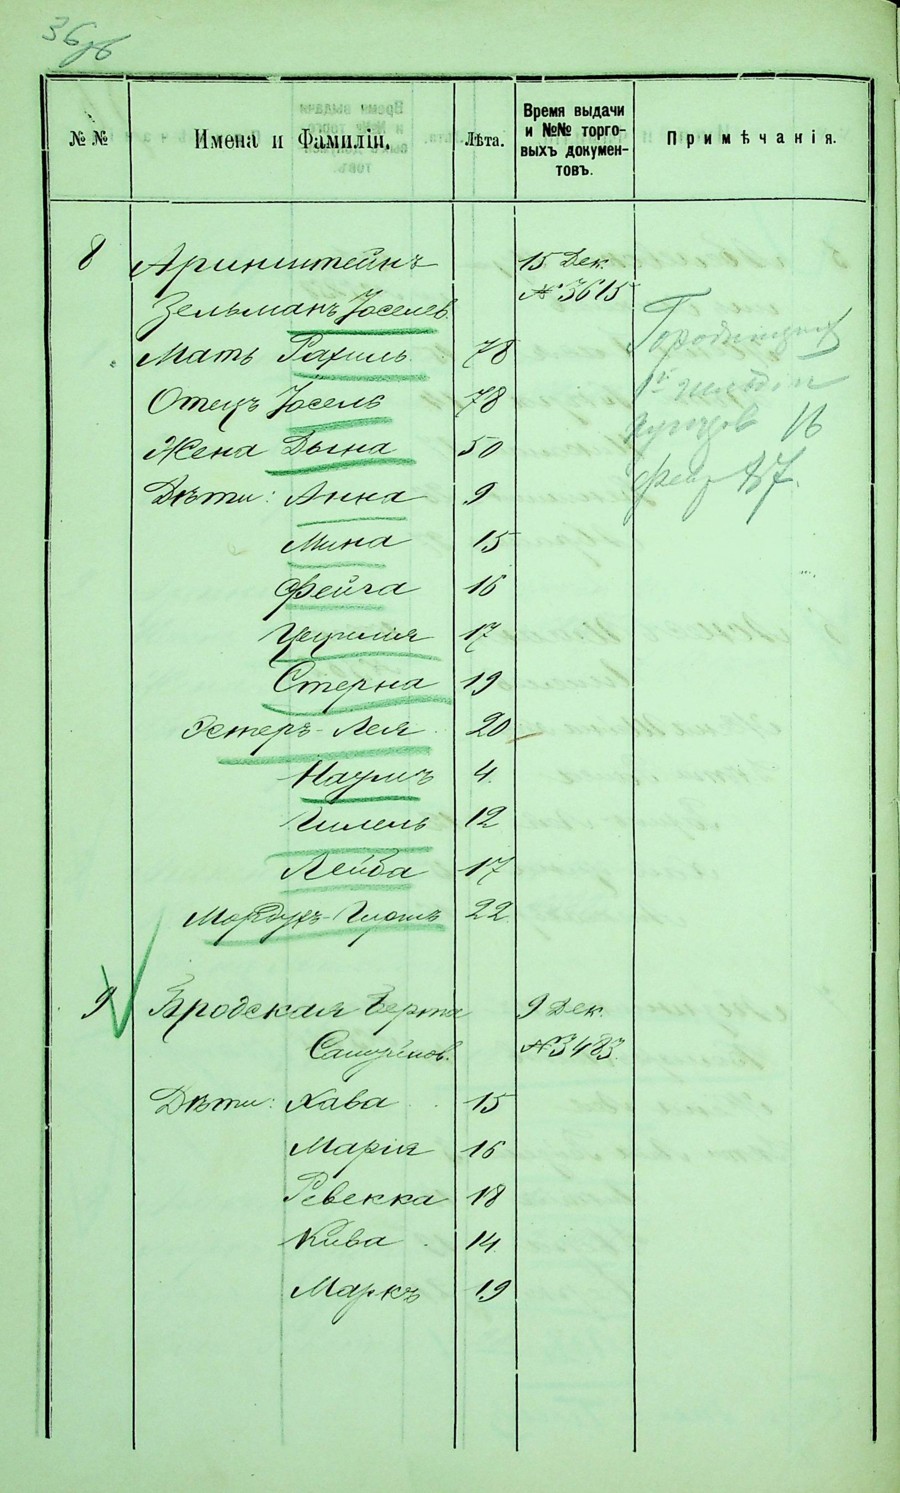 36об
№ №
Имена и Фамиліи.
Лѣта.
Время выдачи
и №№ торго-
выхъ докумен-
товъ.
Примѣчанія.
8 Аринштейнъ 15 Дек.
Зельманъ Іоселев. № 3615
Мать Рахиль 78
Отецъ Іосель 78
Жена Дына 50
Дѣти: Анна 9
Мина 15
Фейга 16
Цецилія 17
Стерна 19
Эстеръ-Лея 20
Наумъ 4
Гилель 12
Лейба 17
Мордухъ-Гиршъ 22
купцов 16
9 Бродская Берта 9 Дек.
Самуилов. № 3483
Дѣти: Хава 15
Марія 16
Ревекка 18
Кива 14
Маркъ 19